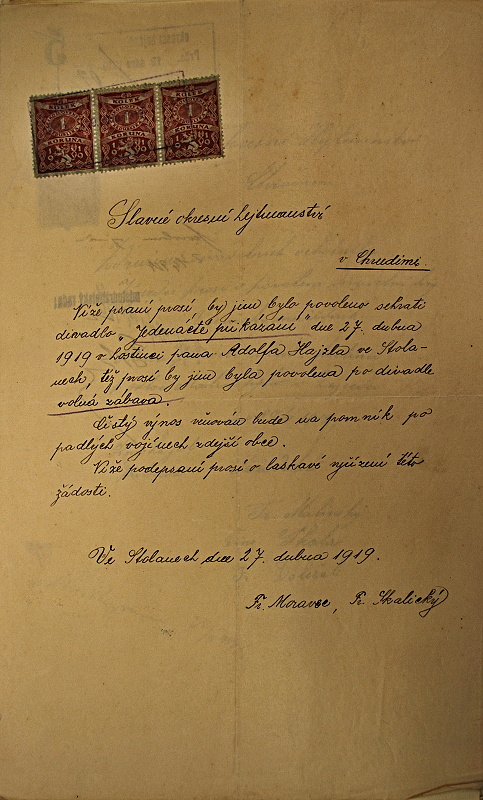 KOLEK
1
KORUNA
KOLEK
1
KORUNA
KOLEK
1
KORUNA
Slavné okresní hejtmanství
v Chrudimi.
Níže psaní prosí by jim bylo povoleno sehráti
divadlo „Jedenácté přikázání" dne 27. dubna
1919 v hostinci pana Adolfa Hajzla ve Stola-
nech, též prosí by jim byla povolena po divadle
volná zábava.
Čistý výnos věnován bude na pomník po
padlých vojínech zdejší obce.
Níže podepsaní prosí o laskavé vyřízení této
žádosti.
Ve Stolanech dne 27. dubna 1919.
Fr. Moravec, Fr. Skalický